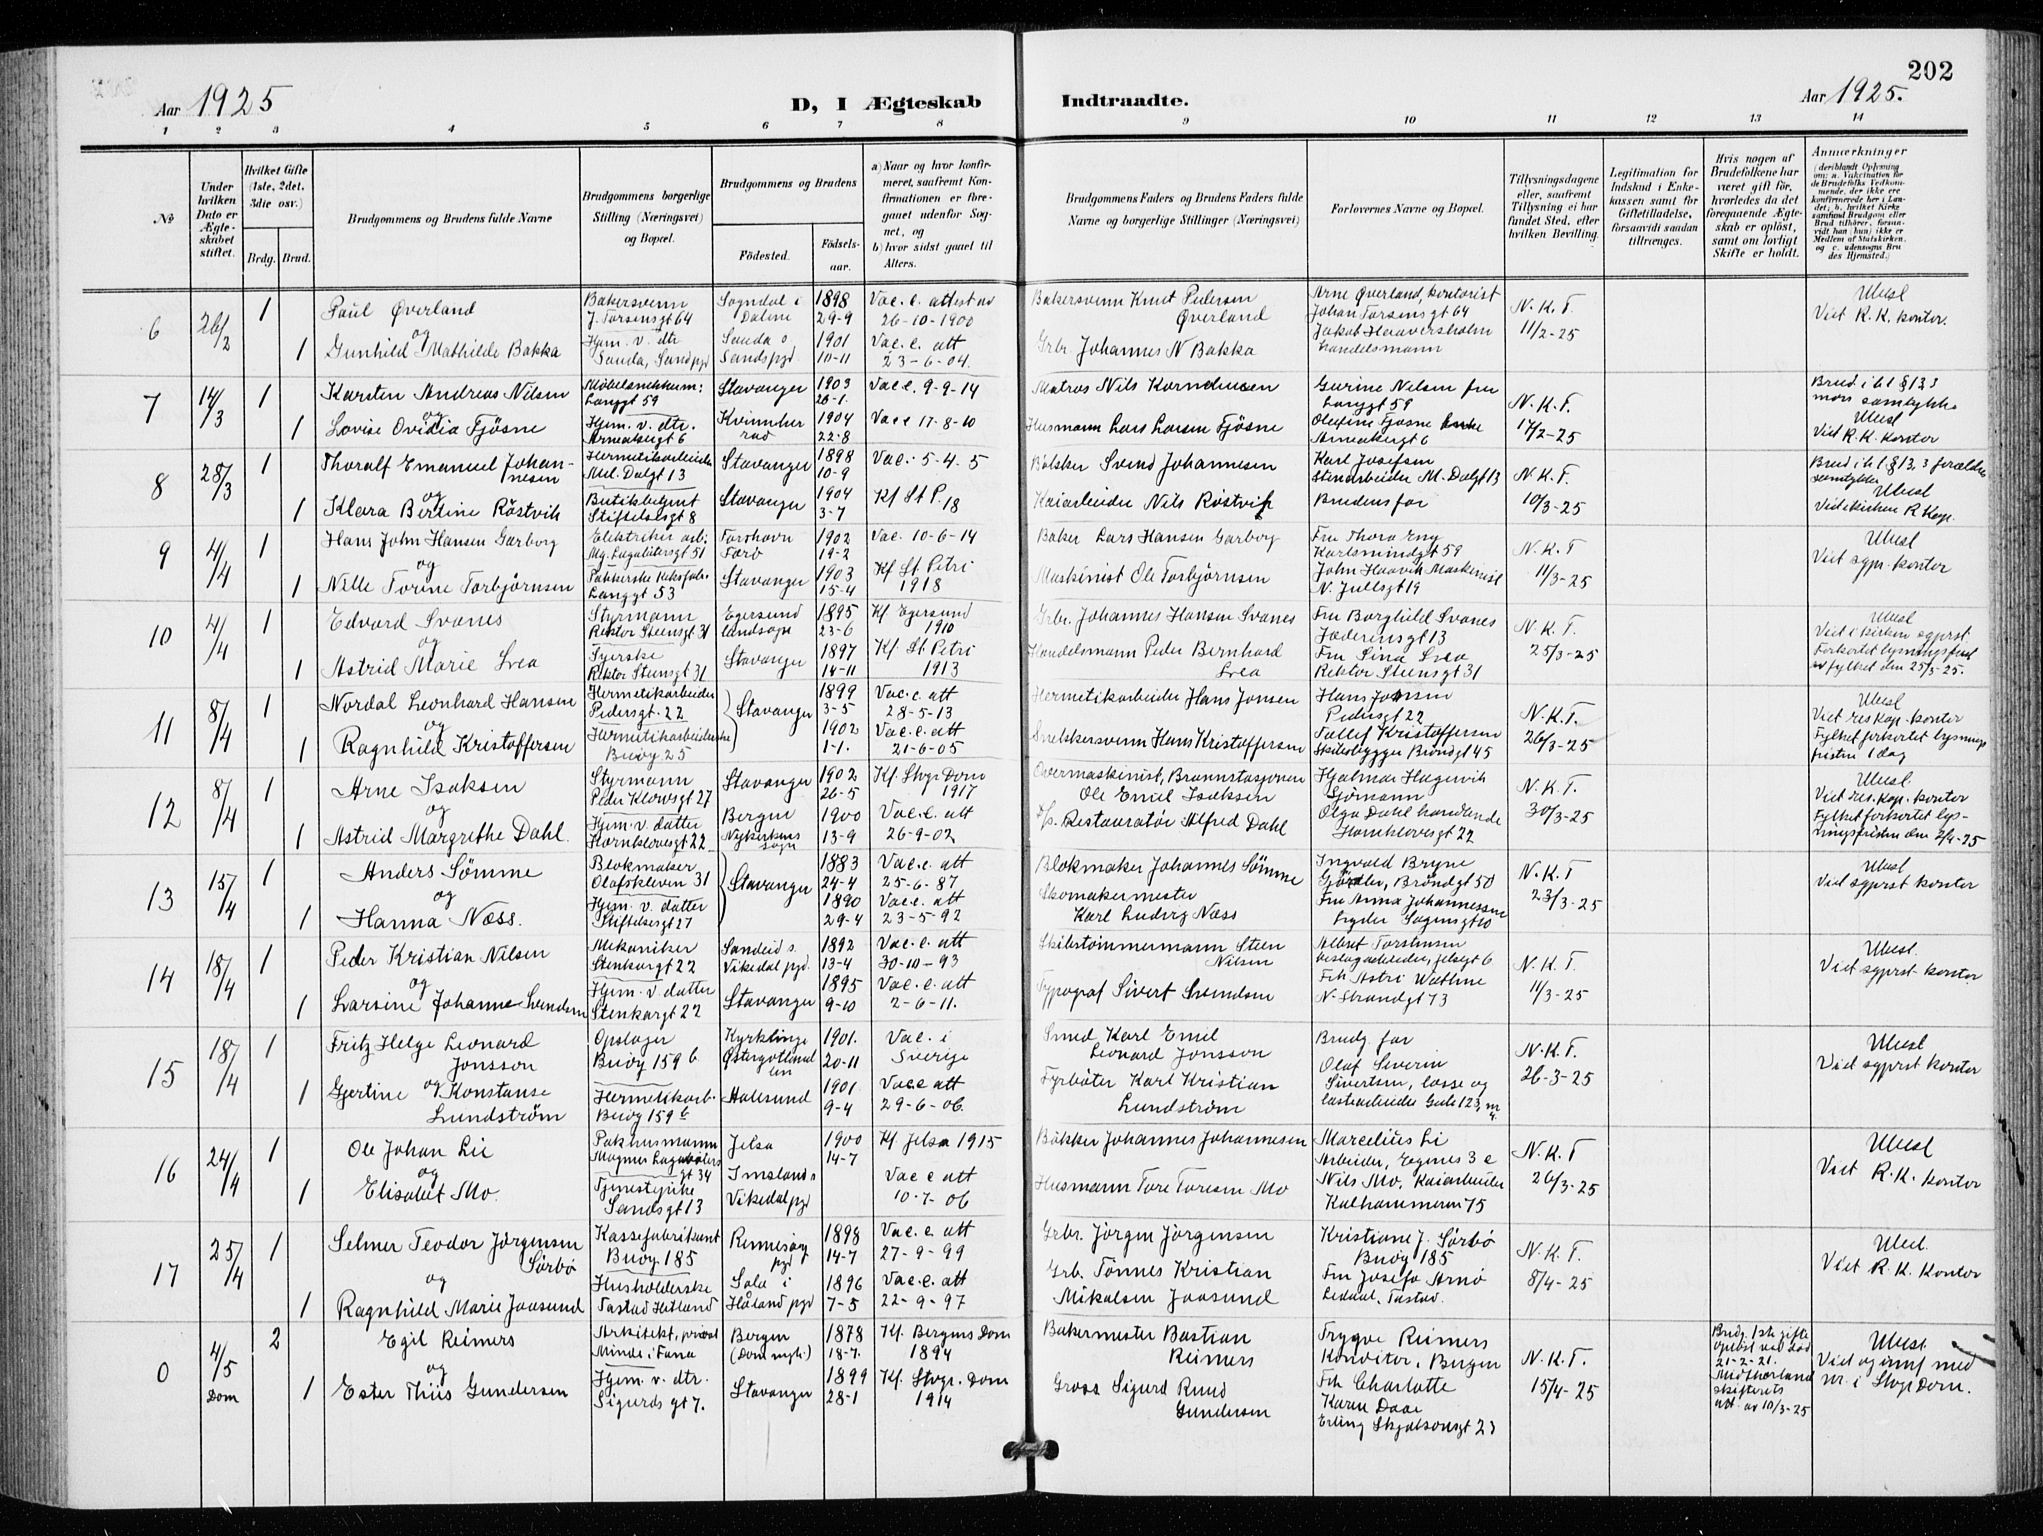 202
Aar 1925
D, I Ægteskab
Indtraadte.
Aar 1925.
1 2 3 4 5 6 7 8 9 10 11 12 13 14
No
Under hvilken Dato er Ægteskabet stiftet.
Hvilket Gifte (1ste, 2det, 3die osv.)
Brdg. Brud.
Brudgommens og Brudens fulde Navne
Brudgommens borgerlige Stilling (Næringsvei) og Bopæl.
Brudgommens og Brudens
Fødested.
Fødselsaar.
a) Naar og hvor konfirmeret, saafremt Konfirmationen er foregaaet udenfor Sognet, og
b) hvor sidst gaaet til Alters.
Brudgommens Faders og Brudens Faders fulde Navne og borgerlige Stillinger (Næringsvei)
Forlovernes Navne og Bopæl.
Tillysningsdagene eller, saafremt Tillysning ei har fundet Sted, efter hvilken Bevilling.
Legitimation for Indskud i Enkekassen samt for Giftetilladelse, forsaavidt saadan tiltrænges.
Hvis nogen af Brudefolkene har været gift før, hvorledes da det foregaaende Ægteskab er opløst, samt om lovligt Skifte er holdt.
Anmærkninger
(deriblandt Oplysning om: a. Vakcination for de Brudefolks Vedkommende, der ikke ere konfirmerede her i Landet; b. hvilket Kirkesamfund Brudgom eller Brud tilhører, forsaavidt han (hun) ikke er Medlem af Statskirken, og c. udensogns Brudes Hjemsted.)
6 26/2 1 Paul Øverland Bakersvenn J. Torsensgt 64 Sogndal i Dalene 1898 29-9 Vac. e. attest av 26-10-1900 Bakersvenn Knut Pedersen Øverland Arne Øverland, kontorist Johan Torsensgt 64 N.K.T. 11/2-25 Ubesl Viet R.K. kontor.
og
1 Gunhild Mathilde Bakka Hjem. v. dtr Sauda, Sand pgd Sauda s Sandspgd. 1901 10-11 Vac. e. att 23-6-04. Grbr. Johannes N Bakka Jakob Haaversholm handelsmann
7 14/3 1 Karsten Andreas Nilsen Langgt 59 Stavanger 1903 26-1. Vac e. 9-9-14 Matros Nils Kornelius­en Gurine Nilsen fru Langgt 59 N.K.T. 17/2-25 Brud. i h. t § 13, 3 mors samtykke Ubesl Viet R.K. kontor
og
1 Lovise Ovidia Fjøsne Hjem. v. dtr. Kvinnherrad 1904 22-8 Vac e 17-8-10 Husmann Lars Larsen Fjøsne Olefine Fjøsne enke
8 28/3 1 Thoralf Emanuel Johannesen Hermetikarbeider Mel. Dalgt 13 Stavanger 1898 10-9 Vac. 5-4.5 Bøkker Svend Johannesen Karl Josefsen Stenarbeider M. Dalgt 13 N.K.T. 10/3-25 Brud i h t § 13, 3 forældres samtykke Ubesl Viet i kirken R Kap.
og
1 Klara Bertine Røstvik Butikbetjent Stiftelsesgt 8 Stavanger 1904 3-7 Kf St P. 18 Kaiarbeider Nils Røstvik Brudens far
9 4/4 1 Hans John Hansen Garborg Elektriker arb. Mg. Lagabøtersgt 51 Torshavn Færø 1902 19-2 Vac. 10-6-14 Baker Lars Hansen Garborg Fru Thora Eng Karlsmindegt 59 N.K.T 11/3-25 Ubesl Viet sgpr. kontor
og
1 Nille Torine Torbjørnsen Pakkerske Kiksfabr. Langgt 53 Stavanger 1903 15-4 Kf St Petri 1918 Maskinist Ole Torbjørnsen John Haavik Maskinist N. Jullsgt 19
10 4/4 1 Edvard Svanes Styrmann Rektor Steensgt 31 Egersund landsogn 1895 23-6 Kf Egersund 1910 Grbr. Johannes Hansen Svanes Fru Borghild Svanes Jæderensgt 13 N.K.T. 25/3-25 Ubesl Viet i kirken sgprst. Forkortet lysningsfrist av fylket den 25/3-25.
og
1 Astrid Marie Svea Syerske Rektor Steensgt 31 Stavanger 1897 14-11 Kf. St Petri 1913 Handelsmann Peder Bernhard Svea Fru Sina Svea Rektor Steensgt 31
11 8/4 1 Nordal Leonhard Hansen Hermetikarbeider Pedersgt. 22 Stavanger 1899 3-5 Vac. e. att 28-5-13 Hermetikarbeider Hans Jonsen Hans Jonsen Pedersgt 22 N.K.T. 26/3-25 Ubesl Viet res kap. kontor Fylket forkortet lysningsfristen 1 dag
og
1 Ragnhild Kristoffersen Hermetikarbeiderske Buøy 25 1902 1-1. Vac. e. att 21-6-05 Snekkersvenn Hans Kristoffersen Tollef Kristoffersen Skibsbygger Brøndgt 45
12 8/4 1 Arne Isaksen Styrmann Peder Klowsgt 27 Stavanger 1902 26-5 Kf. Stvgr Dom 1917 Overmaskinist, Brannstasjonen Ole Emil Isaksen Hjalmar Hagevik Sjømann N.K.T. 30/3-25 Ubesl. Viet res. kap. kontor Fylket forkortet lysningsfristen den 2/4-25
og
1 Astrid Margrethe Dahl. Hjem. v. datter Hornklovesgt 22 Bergen Nykirkens sogn 1900 13-9 Vac. e. att 26-9-02 Fhv. Restauratør Alfred Dahl Olga Dahl handlende Hornklovesgt 22
13 15/4 1 Anders Sømme Blokmaker Olafskleven 31 Stavanger 1883 24-4 Vac. e. att 25-6-87 Blokmaker Johannes Sømme Ingvald Bryne Gjørtler, Brøndgt 50 N.K.T 23/3-25 Ubesl Viet sgprst kontor
og
1 Hanna Næss. Hjem. v. datter Stiftelsesgt 27 1890 29-4 Vac. e. att 23-5-92 Skomakermester Karl Ludvig Næss Fru Anna Johannessen Lyder Sagensgt 10
14 18/4 1 Peder Kristian Nilsen Mekaniker Stenkargt 22 Sandeid s. Vikedal pgd 1892 13-4 Vac. e. att 30-10-93 Skibstømmermann Steen Nilsen Albert Torstensen N.K.T. 11/3-25 Ubesl. Viet sgprst kontor
og
1 Larsine Johanne Svendsen Hjem. v. datter Stenkargt 22 Stavanger 1895 9-10 Vac. e. att 2-6-11. Typograf Sivert Svendsen Frk Astri Wathne N. Strandgt 73
15 18/4 1 Fritz Helge Leonard Jonsson Opslager Buøy 159 b Kyrklinge Østergøtland 1901. 20-11 Vac. i Sverige Smed Karl Emil Leonard Jonsson Brudg. far N.K.T. 26-3-25 Ubesl Viet sgprst kontor
og
1 Gjertine Konstanse Lundstrøm Hermetikarb. Buøy 159 b Aalesund 1901. 9-4 Vac e att 29-6-06. Fyrbøter Karl Kristian Lundstrøm Olaf Severin Sivertsen, losse og lastearbeider
16 24/4 1 Ole Johan Lie Pakhusmann Magnus Lagabøters gt 34 Jelsa 1900 14-7 Kf Jelsa 1915 Bøkker Johannes Johannesen Marcelius Li Arbeider, Egenes 3 e N.K.T 26/3-25 Ubesl Viet R.K. kontor
og
1 Elisabet Mo. Tjenestepike Sandsgt 13 Imslands Vikedal pgd Vac e att 10-7-06 Husmann Tore Toresen Mo Nils Mo, Kaiarbeider Kalhammeren 75
17 25/4 1 Selmer Teodor Jørgensen Sørbø Kassefabrikant Buøy 185 Rennesøy pgd 1898 14-7 Vac. e. att 27-9-99 Grbr. Jørgen Jørgensen Kristiane J. Sørbø Buøy 185 N.K.T. 8/4-25 Ubesl. Viet R.K. Kontor
og
1 Ragnhild Marie Joasund Husholderske Tastad Hetland Sola i Håland pgd 1896 7-5 Vac. e. att 22-9-97 Grb. Tønnes Kristian Mikalsen Joasund Fru Josefa Arnø Ledaal, Tastad.
0 4/5 Dom 2 Egil Reimers Arkitekt, privat Minde i Fana Bergen (Dom mgh.) 1878 18-7. Kf. Bergens Dom 1894 Bakermester Bastian Reimers Trygve Reimers Konditor, Bergen N.K.T. 15/4-25 Brudg. 1ste gifte opløst ved død 21-2-21. Midthordland skifterets att. av 10/3-25 Ubesl. Viet og innf med nr. i Stvgr Dom.
og
1 Ester Thiis Gundersen Hjem. v. dtr. Sigurds gt 7. Stavanger 1899 28-1 Kf. Stvgr. Dom 1914 Gross Sigurd Ruud Gundersen Frk Charlotte Karen Daae Erling Skjalsonsgt 23